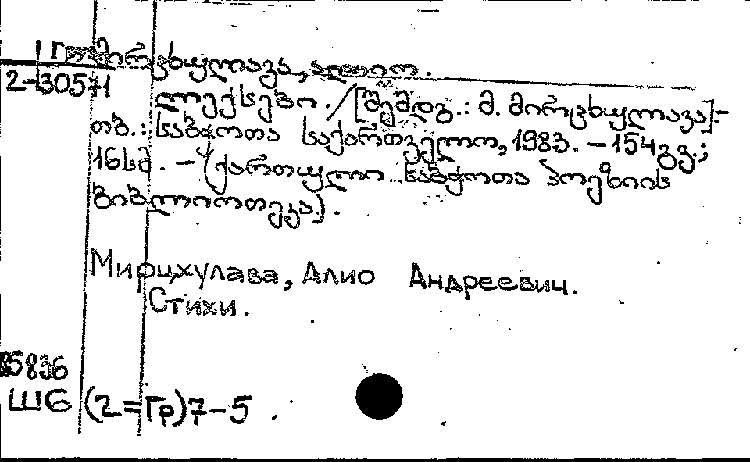 მირცხულავა, ალიო.
2-30571
ლექსები. / [შემდგ.: მ. მირცხულავა].-
თბ.: საბჭოთა საქართველო, 1983. – 154 გვ.;
16 სმ. – (ქართული საბჭოთა პოეზიის
ბიბლიოთეკა).
Мирцхулава, Алио Андреевич.
Стихи.
85836
Ш6 (2=Гр)7-5.